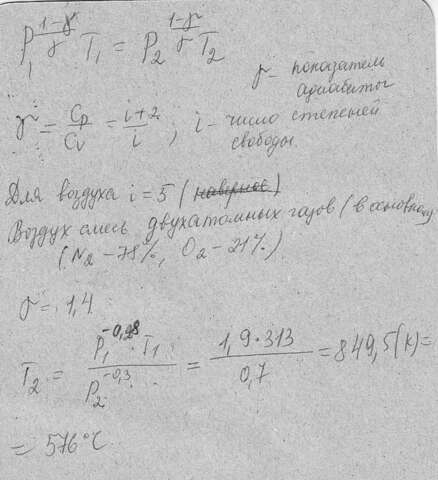 P₁^((1-γ)/γ) T₁ = P₂^((1-γ)/γ) T₂
γ - показатель
адиабаты
γ = Cp/Cv = (i+2)/i ; i - число степеней
свободы.
Для воздуха i = 5 (наверное)
Воздух смесь двухатомных газов (в основном)
(N₂ - 78%, O₂ - 21%)
γ = 1,4
T₂ = (P₁^(-0,28) · T₁)/(P₂^(-0,3)) = (1,9·313)/0,7 = 849,5(K) =
= 576°C